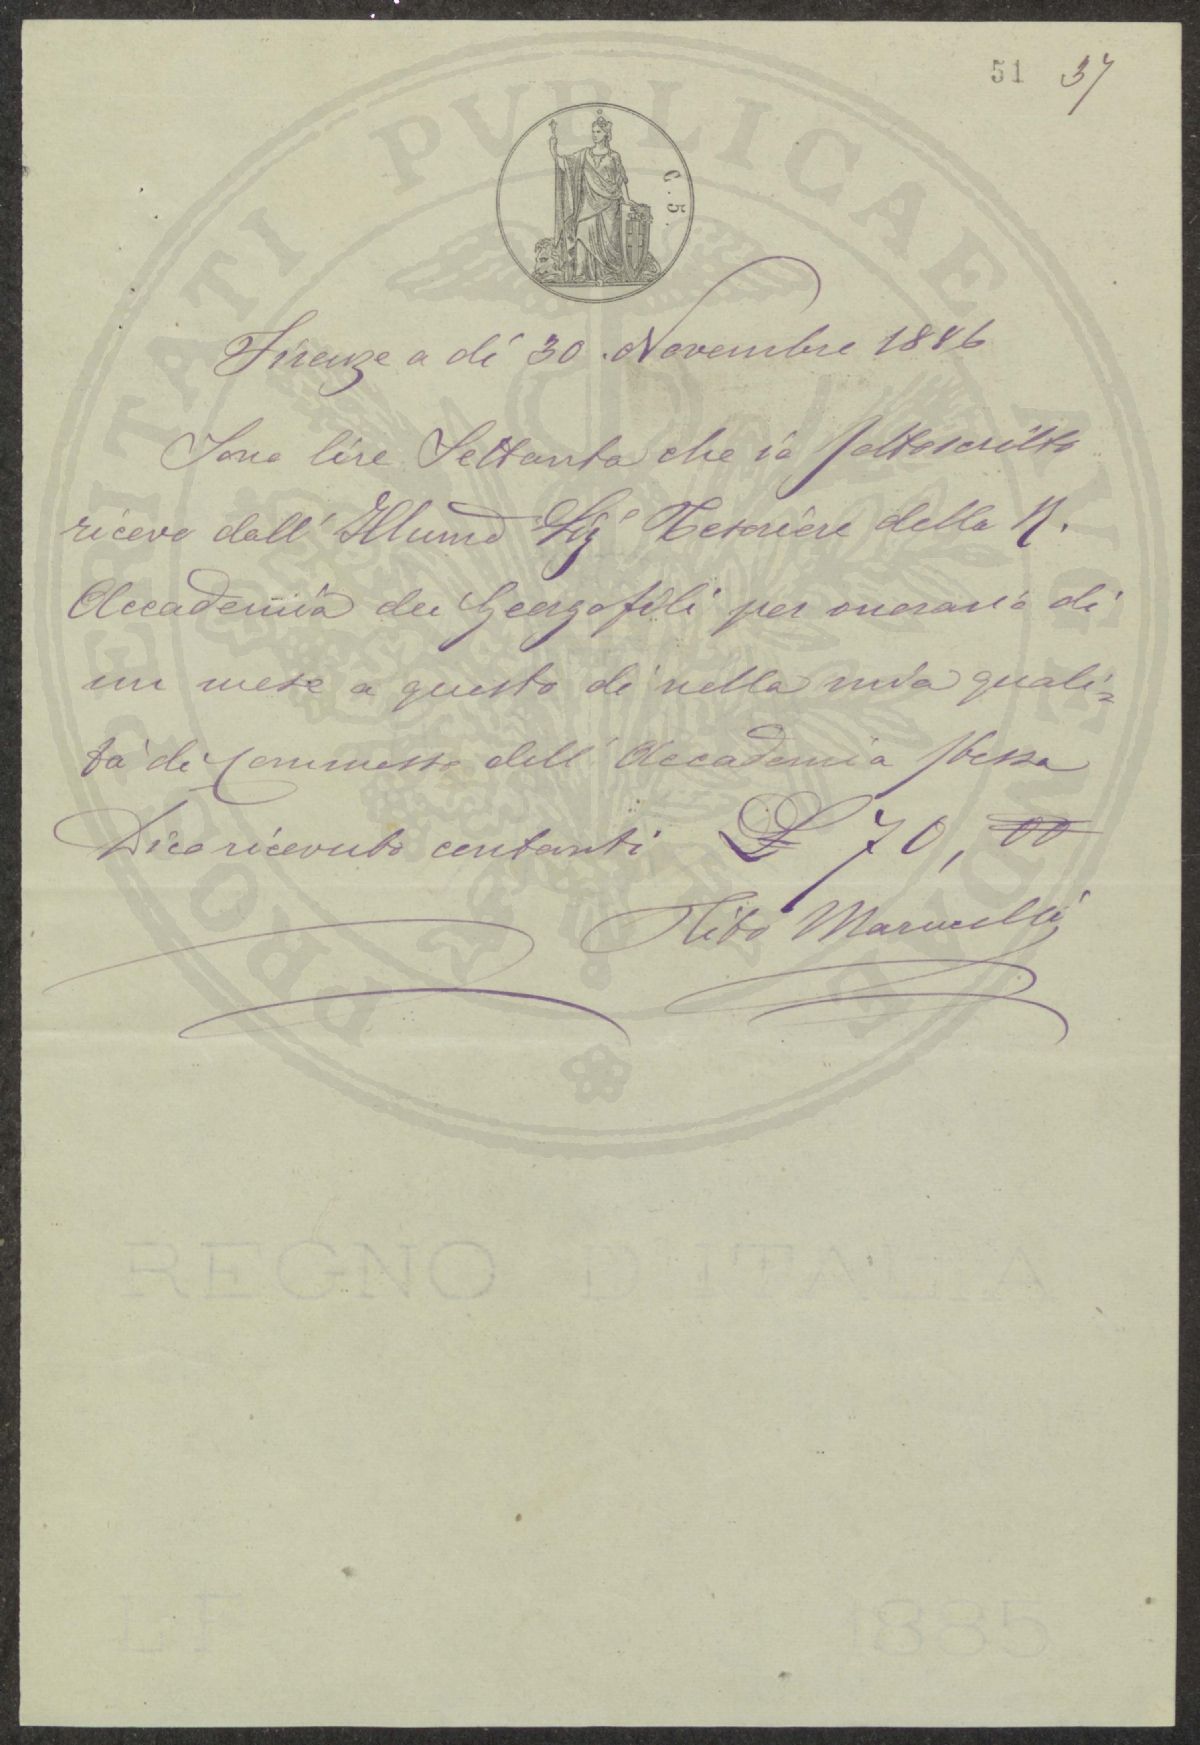 51 37
C. 5.
PROSPERITATI PUBLICAE AUGENDAE
Firenze a dì 30 Novembre 1886
Sono lire Settanta che io sottoscritto
ricevo dall' Illumo Sigr Tesoriere della R.
Accademia dei Georgofili per onorario di
un mese a questo dì nella mia quali=
tà di Commesso dell' Accademia stessa
Dico ricevuto contanti £ 70,00
Tito Marucelli
REGNO D'ITALIA
LF 1885